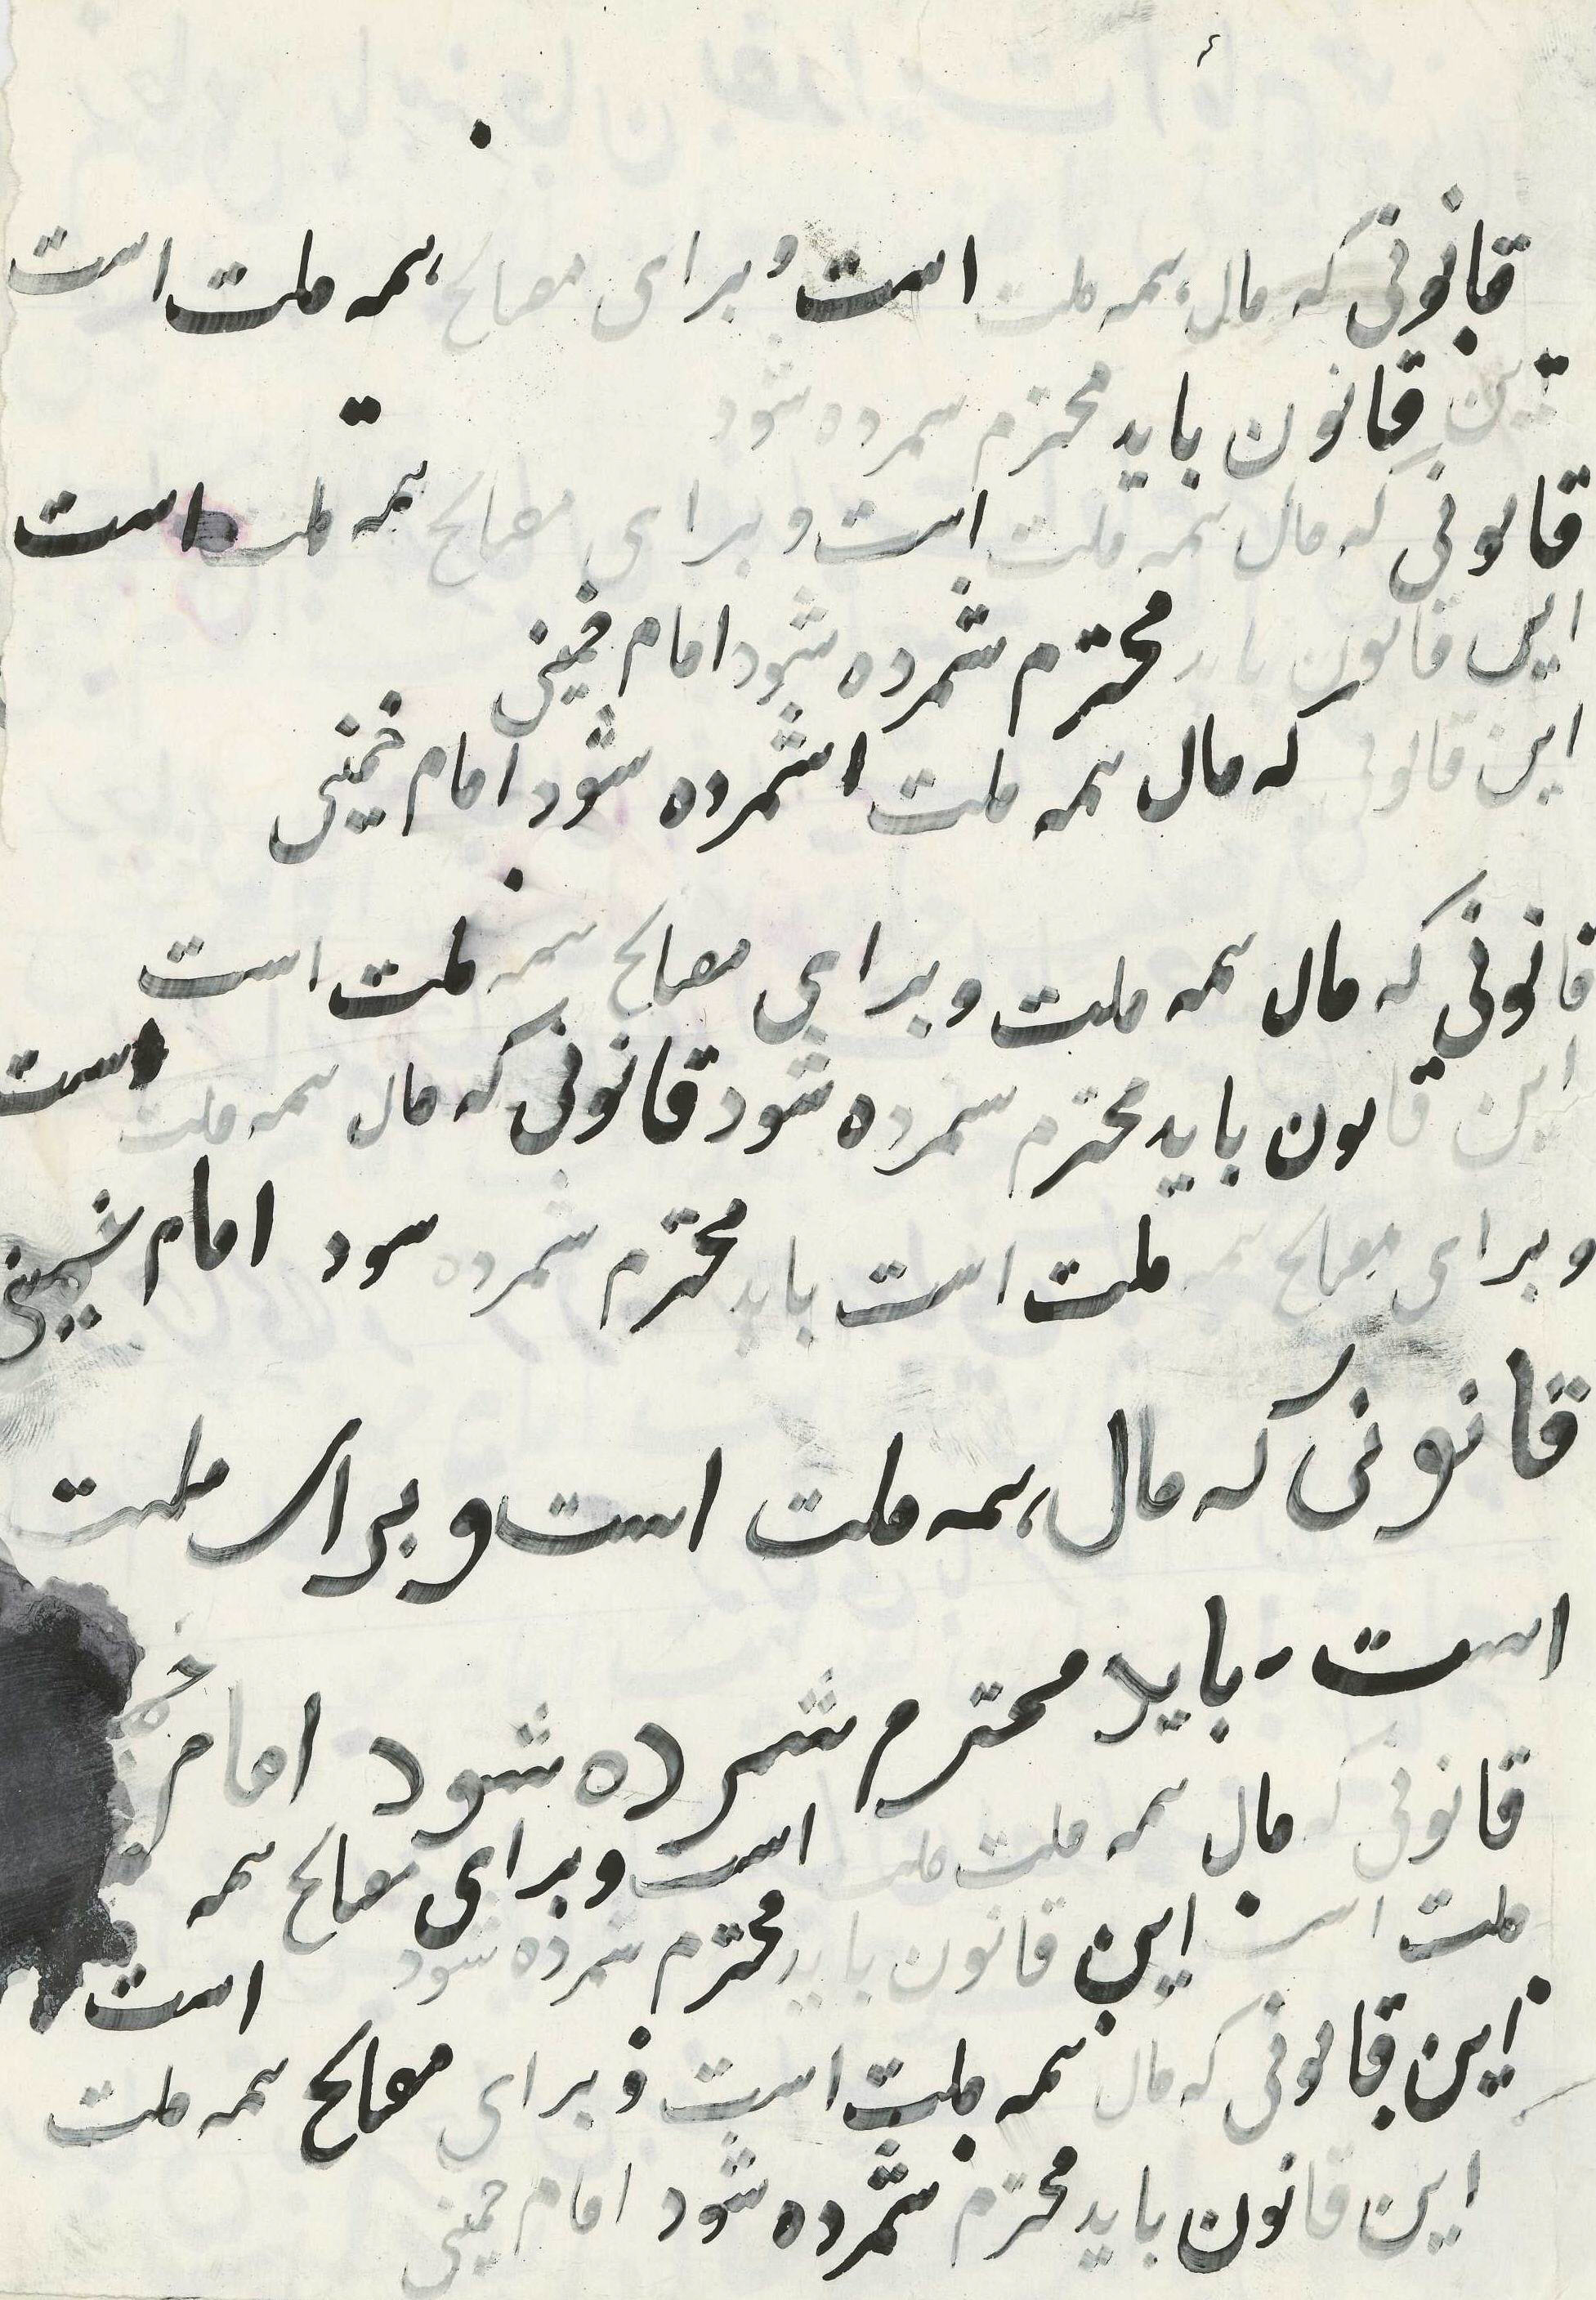 قانونی که مال همه ملت است و برای مصالح همه ملت است
این قانون باید محترم شمرده شود
قانونی که مال همه ملت است و برای مصالح همه ملت است
این قانون باید محترم شمرده شود امام خمینی
این قانونی که مال همه ملت اشمرده شود امام خمینی
قانونی که مال همه ملت و برای مصالح همه ملت است
این قانون باید محترم شمرده شود قانونی که مال همه ملت است
و برای مصالح همه ملت است باید محترم شمرده شود امام خمینی
قانونی که مال همه ملت است و برای ملت
است باید محترم شمرده شود امام
قانونی که مال همه ملت ملت است و برای مصالح همه
ملت است این قانون باید محترم شمرده شود
است
این قانونی که مال همه ملت است و برای مصالح همه ملت
این قانون باید محترم شمرده شود امام خمینی